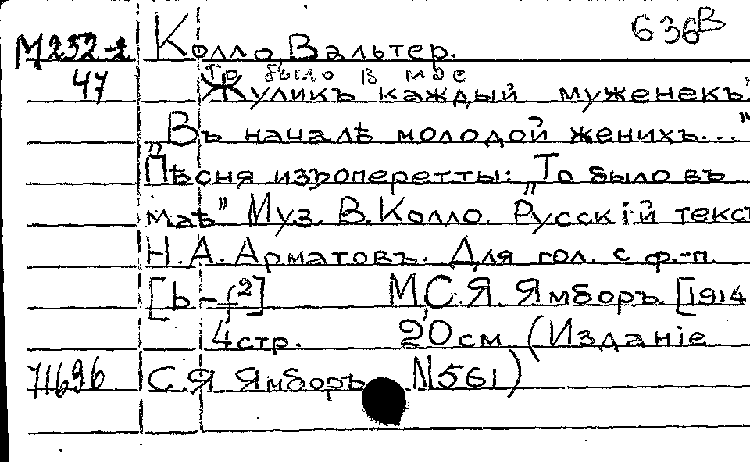 636В
М252-2 Колло Вальтер.
То было в мае
47 Жуликъ каждый муженекъ"
„Въ началѣ молодой женихъ..."
Пѣсня изъоперетты: „То было въ
маѣ" Муз. В. Колло. Русскій текст
Н.А. Арматовъ. Для гол. с ф.-п.
[b - f²] М, С.Я. Ямборъ. [1914
4 стр. 20 см. (Изданіе
71696 С.Я Ямборъ N561)